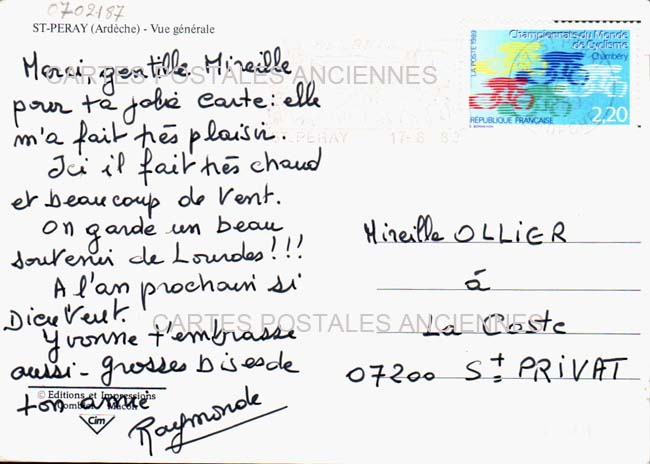 0702187
ST-PERAY (Ardèche) - Vue générale
Merci gentille Mireille
pour ta jolie carte : elle
m'a fait très plaisir.
Ici il fait très chaud
et beaucoup de vent.
On garde un beau
souvenir de Lourdes !!!
A l'an prochain si
Dieu Veut.
Yvonne t'embrasse
aussi - grosses bises de
ton amie
Raymonde
© Editions et Impressions
Combier Macon
Cim
CARTES POSTALES ANCIENNES
CARTES POSTALES ANCIENNES
ST-PERAY 17-8 89
LA POSTE 1989
Championnats du Monde
de Cyclisme
Chambéry
2,20
RÉPUBLIQUE FRANÇAISE
Mireille OLLIER
à
La Coste
07200 St PRIVAT